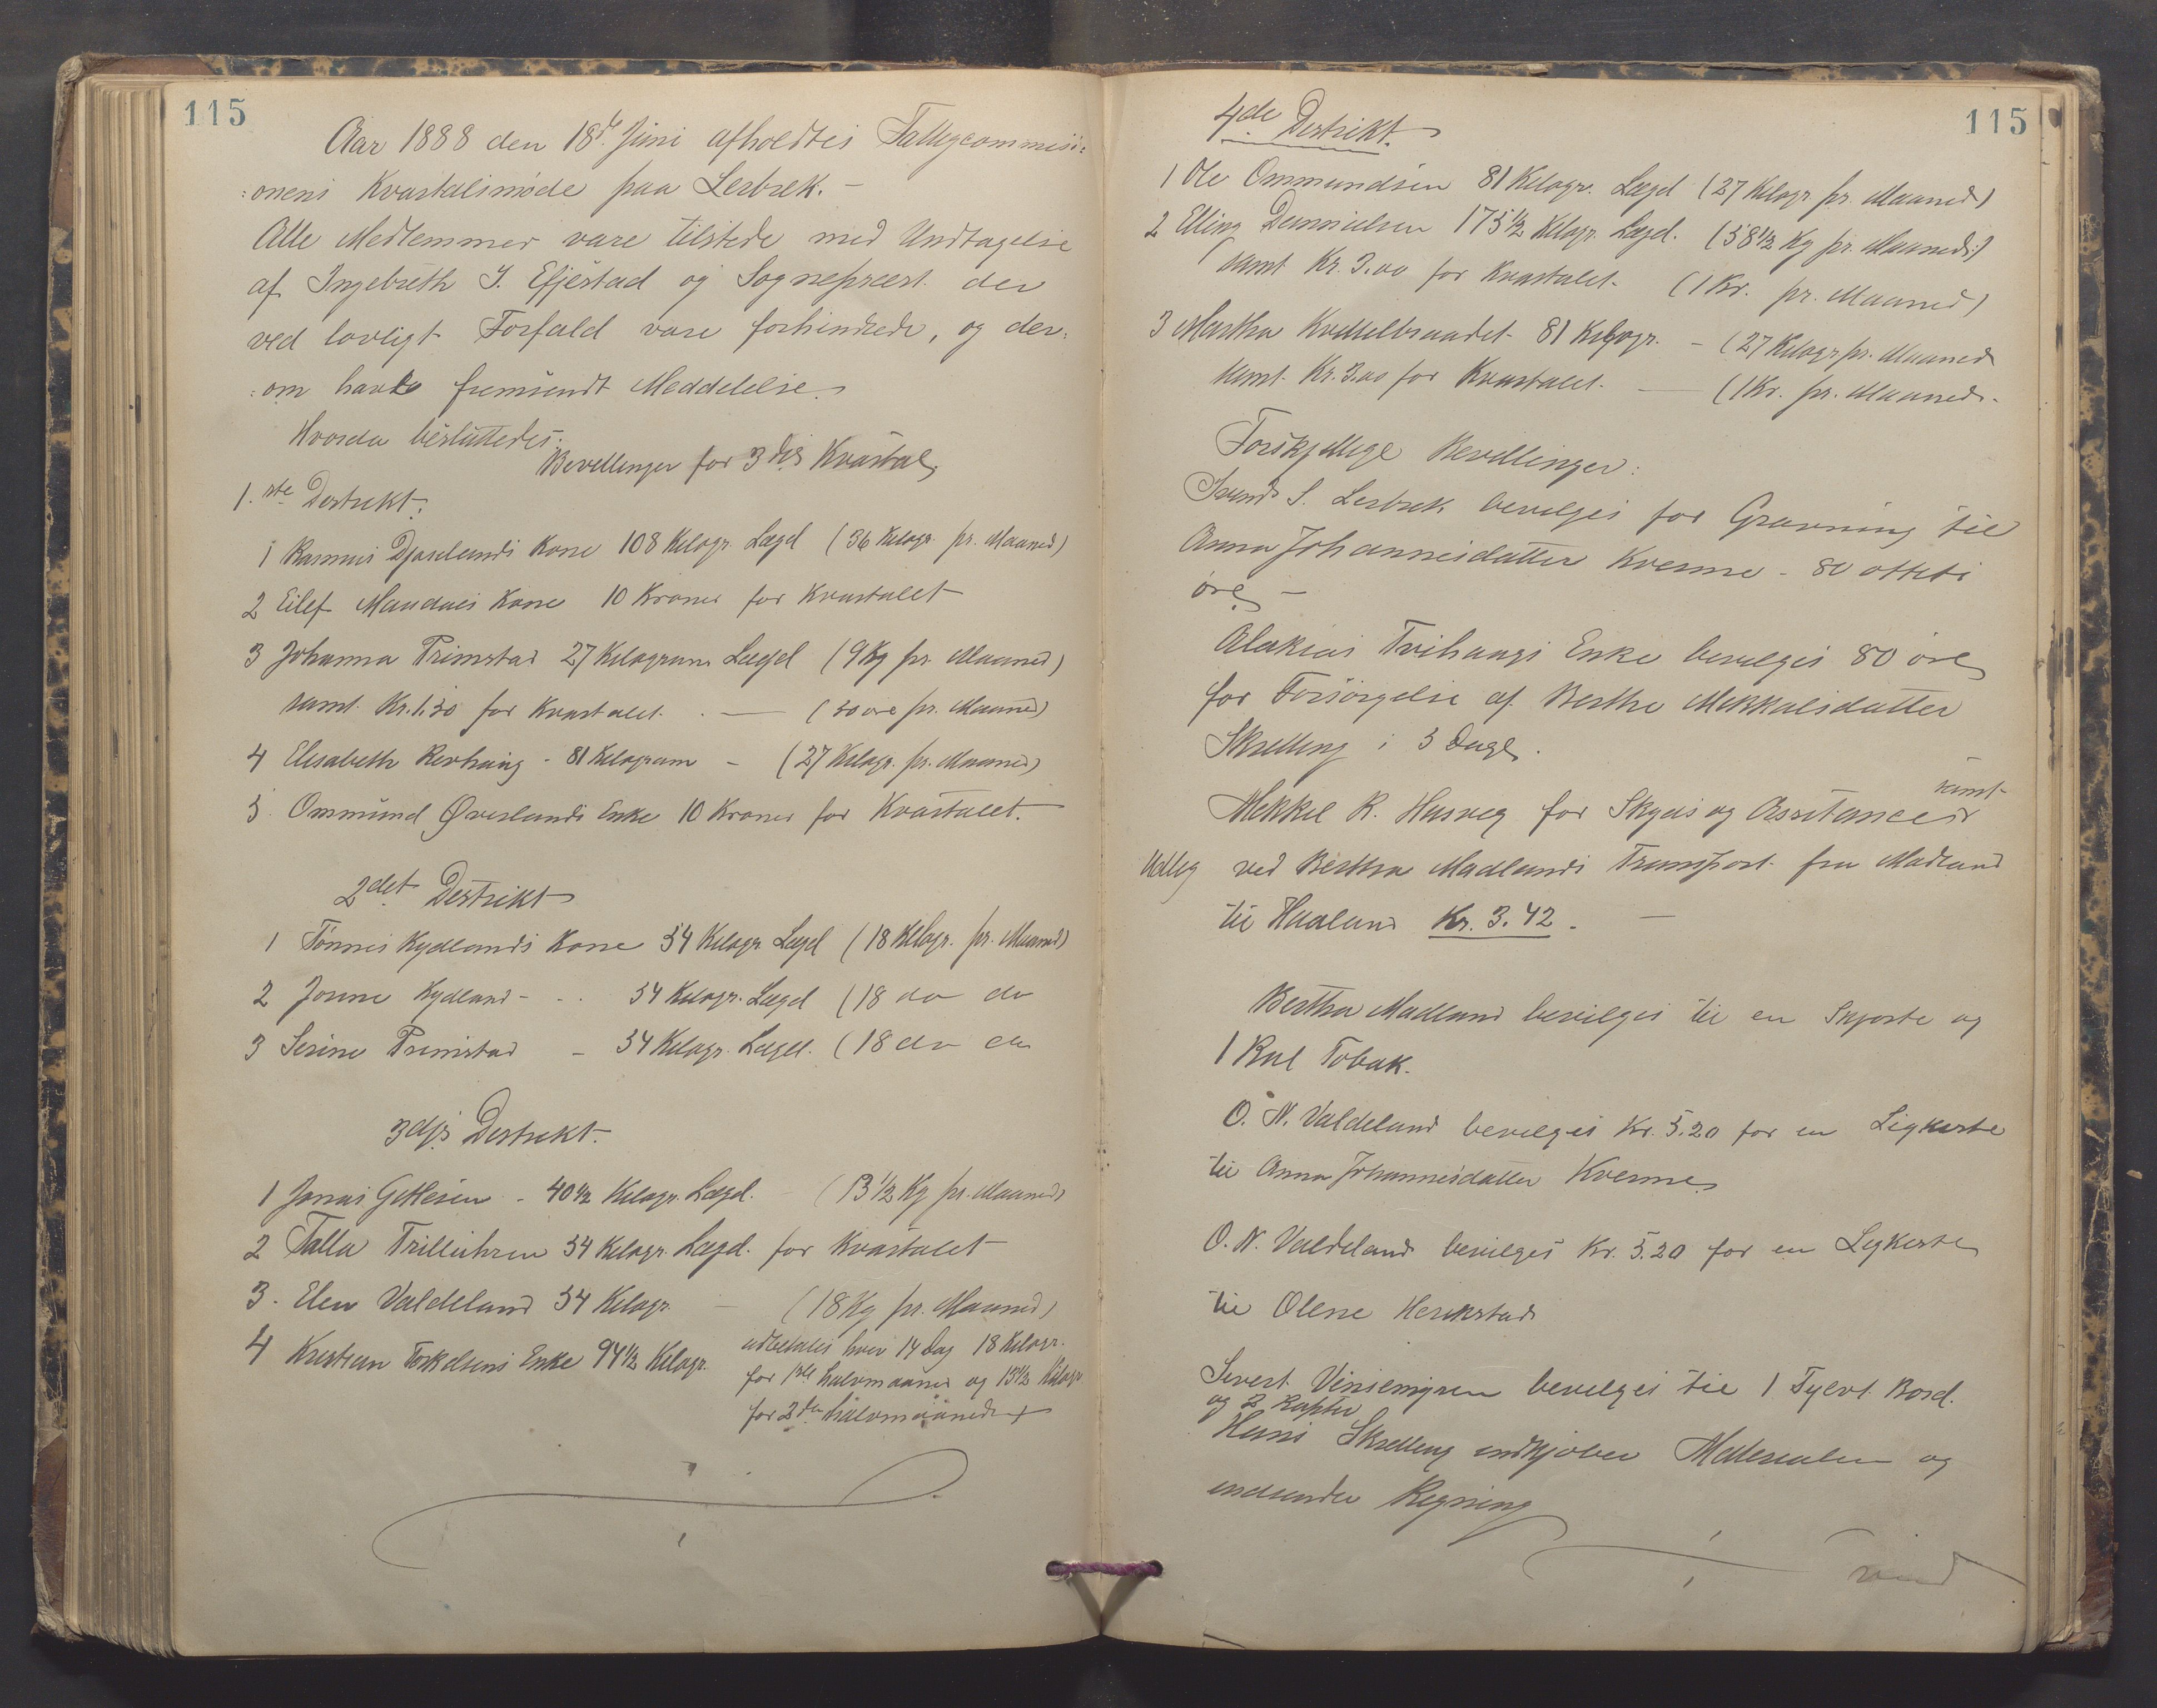 115
Aar 1888 den 18d. Juni afholdtes Fattigcommisi:
:onens Kvartalsmøde paa Lerbrek. -
Alle Medlemmer vare tilstede med Undtagelse
af Ingebreth I. Efjestad og Sognepræst. der
ved lovligt Forfald vare forhindrede, og der:
:om havde fremsendt Meddelelse.
Hvorda besluttedes:
Bevillinger for 3die Kvartal
1.ste Destrikt:
1 Rasmus Djoselands Kone 108 Kilogr. Lægd (36 Kilogr. pr. Maaned)
2 Eilef Maudals Kone 10 Kroner for Kvartalet
3 Johanna Primstad 27 Kilogram Lægd (9 Kg pr. Maaned)
samt Kr. 1.50 for Kvartalet. - (50 øre pr. Maaned)
4 Elisabeth Revhaug - 81 Kilogram - (27 Kilogr. pr. Maaned)
5. Ommund Øveslands Enke 10 Kroner for Kvartalet.
2det Destrikt
1 Tønnes Kydlands Kone 54 Kilogr Lægd (18 Kilogr. pr. Maaned)
2 Jonne Kydland - . . 54 Kilogr. Lægd (18 do do
3 Serine Primstad - 54 Kilogr. Lægd. (18 do do
3dje Destrikt.
1 Jonas Gittlesen - 40 1/2 Kilogr. Lægd. (13 1/2 Kg pr. Maaned)
2 Talla Trilluhren 54 Kilogr. Lægd. for Kvartalet
3. Elen Valdeland 54 Kilogr. - (18 Kg pr. Maaned)
4 Kristian Torkelsens Enke 94 1/2 Kilogr. udbetales hver 14 Dag 18 Kilogr.
for 1ste halvmaaned og 13 1/2 Kilogr
for 2den halvmaaned
115
4de Destrikt.
1 Ole Ommundsen 81 Kilogr. Lægd (27 Kilogr. pr. Maaned)
2 Elling Dannielsen 175 1/2 Kilogr. Lægd. (58 1/2 Kg pr. Maaned)
samt Kr. 3.00 for Kvartalet. (1 Kr. pr. Maaned)
3 Martha Kvitelbraadet 81 Kilogr. - (27 Kilogr pr. Maaned
samt Kr. 3.00 for Kvartalet. - (1 Kr. pr. Maaned.
Forskjellige Bevillinger:
Svend S. Lerbrek bevilges for Gravning til
Anna Johannesdatter Kverme - 80 otteti
øre -
Alakias Tvihaugs Enke bevilges 80 øre
for Forsørgelse af Berthe Mekkalsdatter
Skrelling i 3 Dage.
samt
Mekkel R. Husveg for Skyds og Assitance
Udleg ved Bertha Madlands Transport fra Madland
til Haaland Kr. 3.42. -
Bertha Madland bevilges til en Skjorte og
1 Rul Tobak.
O. N. Valdeland bevilges Kr. 5.20 for en Ligkiste
til Anna Johannesdatter Kverme
O. N. Valdeland bevilges Kr. 5.20 for en Ligkiste
til Olene Herikstad
Sivert Vinsemyren bevilges til 1 Tylvt. Bord.
og 2
Hans Skrelling indkjøber Matterialer og
indsender Regning
vend